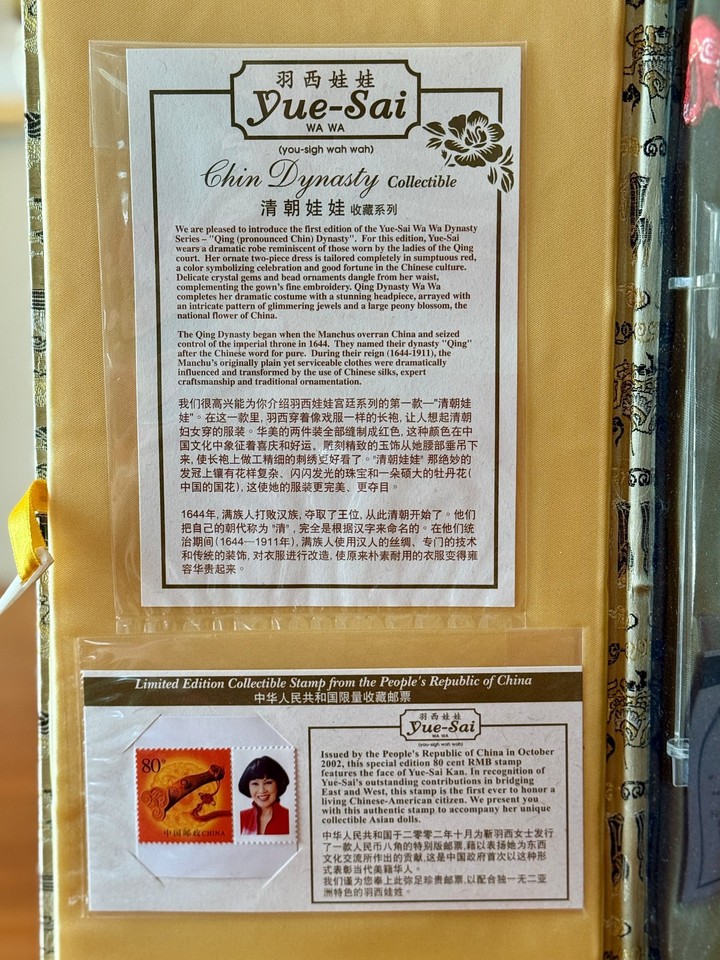 羽西娃娃
Yue-Sai
WA WA
(you-sigh wah wah)
Chin Dynasty Collectible
清朝娃娃 收藏系列
We are pleased to introduce the first edition of the Yue-Sai Wa Wa Dynasty
Series – "Qing (pronounced Chin) Dynasty". For this edition, Yue-Sai
wears a dramatic robe reminiscent of those worn by the ladies of the Qing
court. Her ornate two-piece dress is tailored completely in sumptuous red,
a color symbolizing celebration and good fortune in the Chinese culture.
Delicate crystal gems and bead ornaments dangle from her waist,
complementing the gown's fine embroidery. Qing Dynasty Wa Wa
completes her dramatic costume with a stunning headpiece, arrayed with
an intricate pattern of glimmering jewels and a large peony blossom, the
national flower of China.
The Qing Dynasty began when the Manchus overran China and seized
control of the imperial throne in 1644. They named their dynasty "Qing"
after the Chinese word for pure. During their reign (1644-1911), the
Manchu's originally plain yet serviceable clothes were dramatically
influenced and transformed by the use of Chinese silks, expert
craftsmanship and traditional ornamentation.
我们很高兴能为你介绍羽西娃娃宫廷系列的第一款—"清朝娃
娃"。在这一款里, 羽西穿着像戏服一样的长袍, 让人想起清朝
妇女穿的服装。华美的两件装全部缝制成红色, 这种颜色在中
国文化中象征着喜庆和好运。雕刻精致的玉饰从她腰部垂吊下
来, 使长袍上做工精细的刺绣更好看了。"清朝娃娃" 那绝妙的
发冠上镶有花样复杂、闪闪发光的珠宝和一朵硕大的牡丹花(
中国的国花), 这使她的服装更完美、更夺目。
1644年, 满族人打败汉族, 夺取了王位, 从此清朝开始了。他们
把自己的朝代称为 "清", 完全是根据汉字来命名的。在他们统
治期间(1644—1911年), 满族人使用汉人的丝绸、专门的技术
和传统的装饰, 对衣服进行改造, 使原来朴素耐用的衣服变得雍
容华贵起来。
Limited Edition Collectible Stamp from the People's Republic of China
中华人民共和国限量收藏邮票
羽西娃娃
Yue-Sai
WA WA
(you-sigh wah wah)
80分
中国邮政 CHINA
Issued by the People's Republic of China in October
2002, this special edition 80 cent RMB stamp
features the face of Yue-Sai Kan. In recognition of
Yue-Sai's outstanding contributions in bridging
East and West, this stamp is the first ever to honor a
living Chinese-American citizen. We present you
with this authentic stamp to accompany her unique
collectible Asian dolls.
中华人民共和国于二零零二年十月为靳羽西女士发行
了一款人民币八角的特别版邮票,藉以表扬她为东西
文化交流所作出的贡献,这是中国政府首次以这种形
式表彰当代美籍华人。
我们谨为您奉上此弥足珍贵邮票,以配合独一无二亚
洲特色的羽西娃娃。